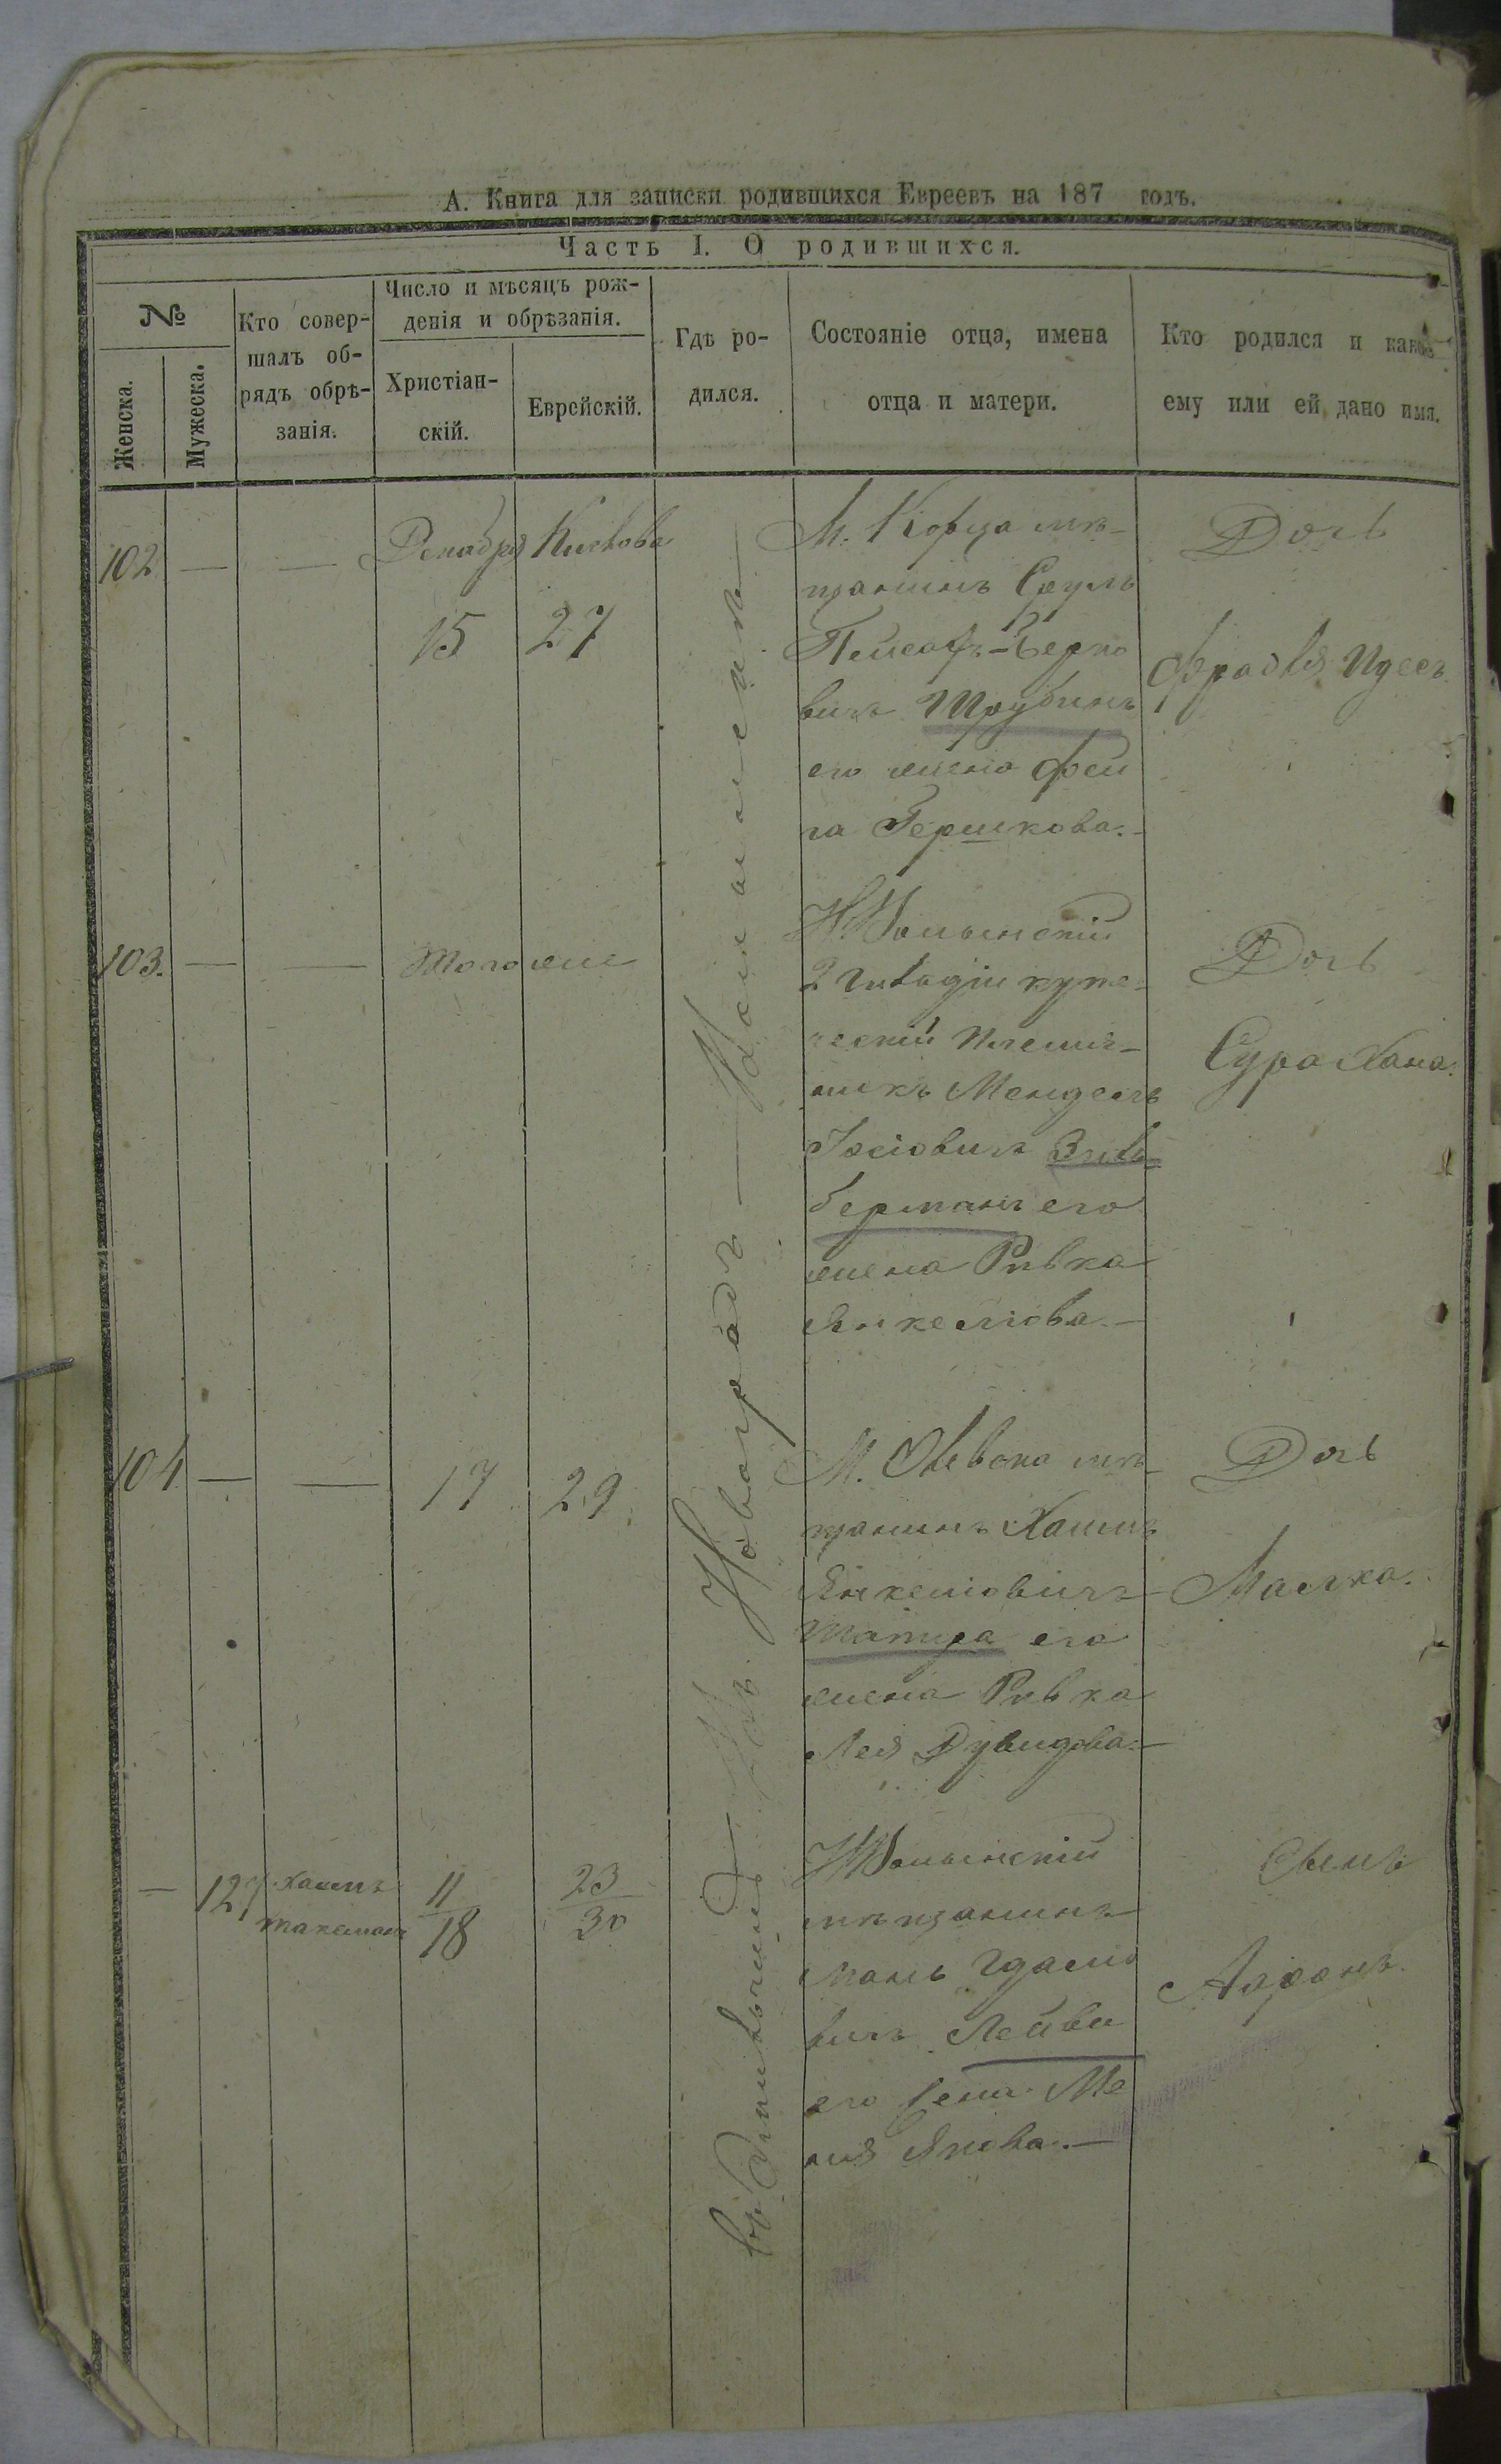 А. Книга для записки родившихся Евреевъ на 187 годъ.
Часть I. О родившихся.
№
Женска.
Мужеска.
Кто совер-
шалъ об-
рядъ обрѣ-
занія.
Число и мѣсяцъ рож-
денія и обрѣзанія.
Христіан-
скій.
Еврейскій.
Гдѣ ро-
дился.
Состояніе отца, имена
отца и матери.
Кто родился и какое
ему или ей дано имя.
102 — — Декабря Кислова
15 27
М. Корца мѣ-
щанинъ Сруль
Пейсахъ-Берко
вичъ Трубинъ
его жена Фей
га Гершкова.-
Дочь
Идесъ
103. — — Того же
Н Волынскій
2 гильдіи купе-
ческій племян-
никъ Мендель
Іосіовичъ Зиль-
берманъ его
жена Ривка
Янкеліова.-
Дочь
Сура Хана.
104 — — 17 29
М. мѣ-
щанинъ Хаимъ
Янкеліовичъ
Шапира его
жена Ривка
Лея Дувидова.-
Дочь
Малка.
— 127 Хаимъ
11/18
23/30
Н Волынскій
мѣщанинъ
Гдаліо
вичъ Лейви
его жена Ме
ня
Сынъ
Ааронъ.
въ Новоградъ — Волынскѣ